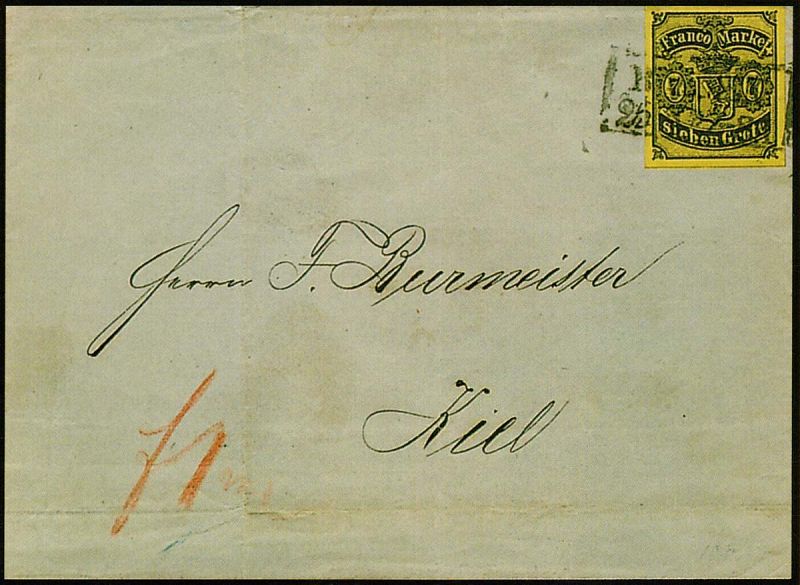 Franco Marke
7 7
sieben Grote
Herrn F. Burmeister
Kiel